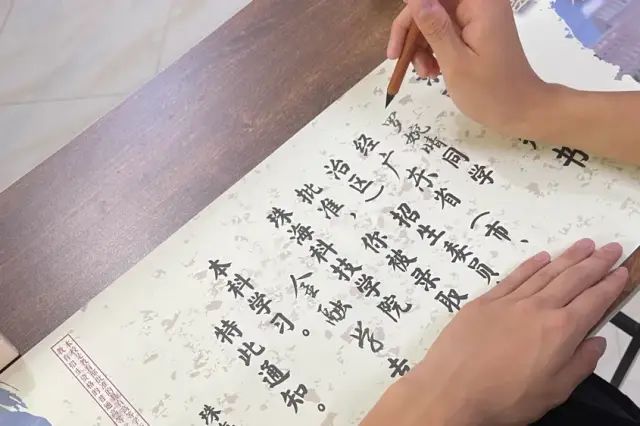 书
罗婉晴同学
经广东省（市、
治区）招生委员
批准，你被录取
珠海科技学院
金融学
本科学习。
特此通知。
珠